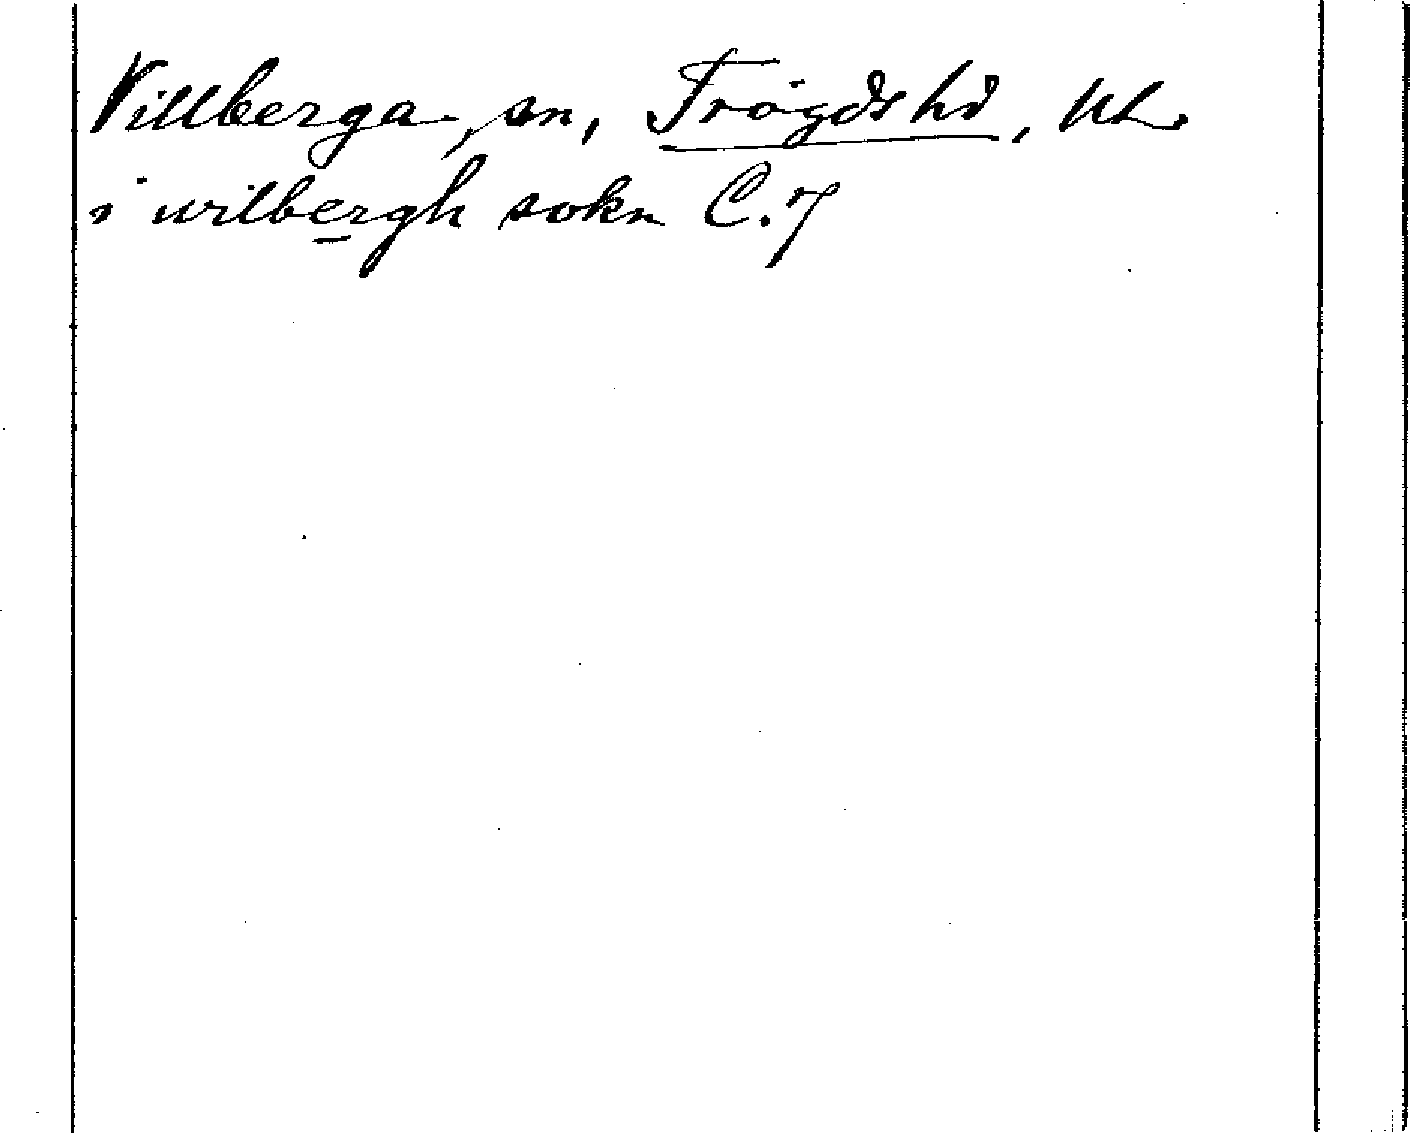 Villberga, sn, Trögds hd, UL.
i wilbergh sokn C. 7